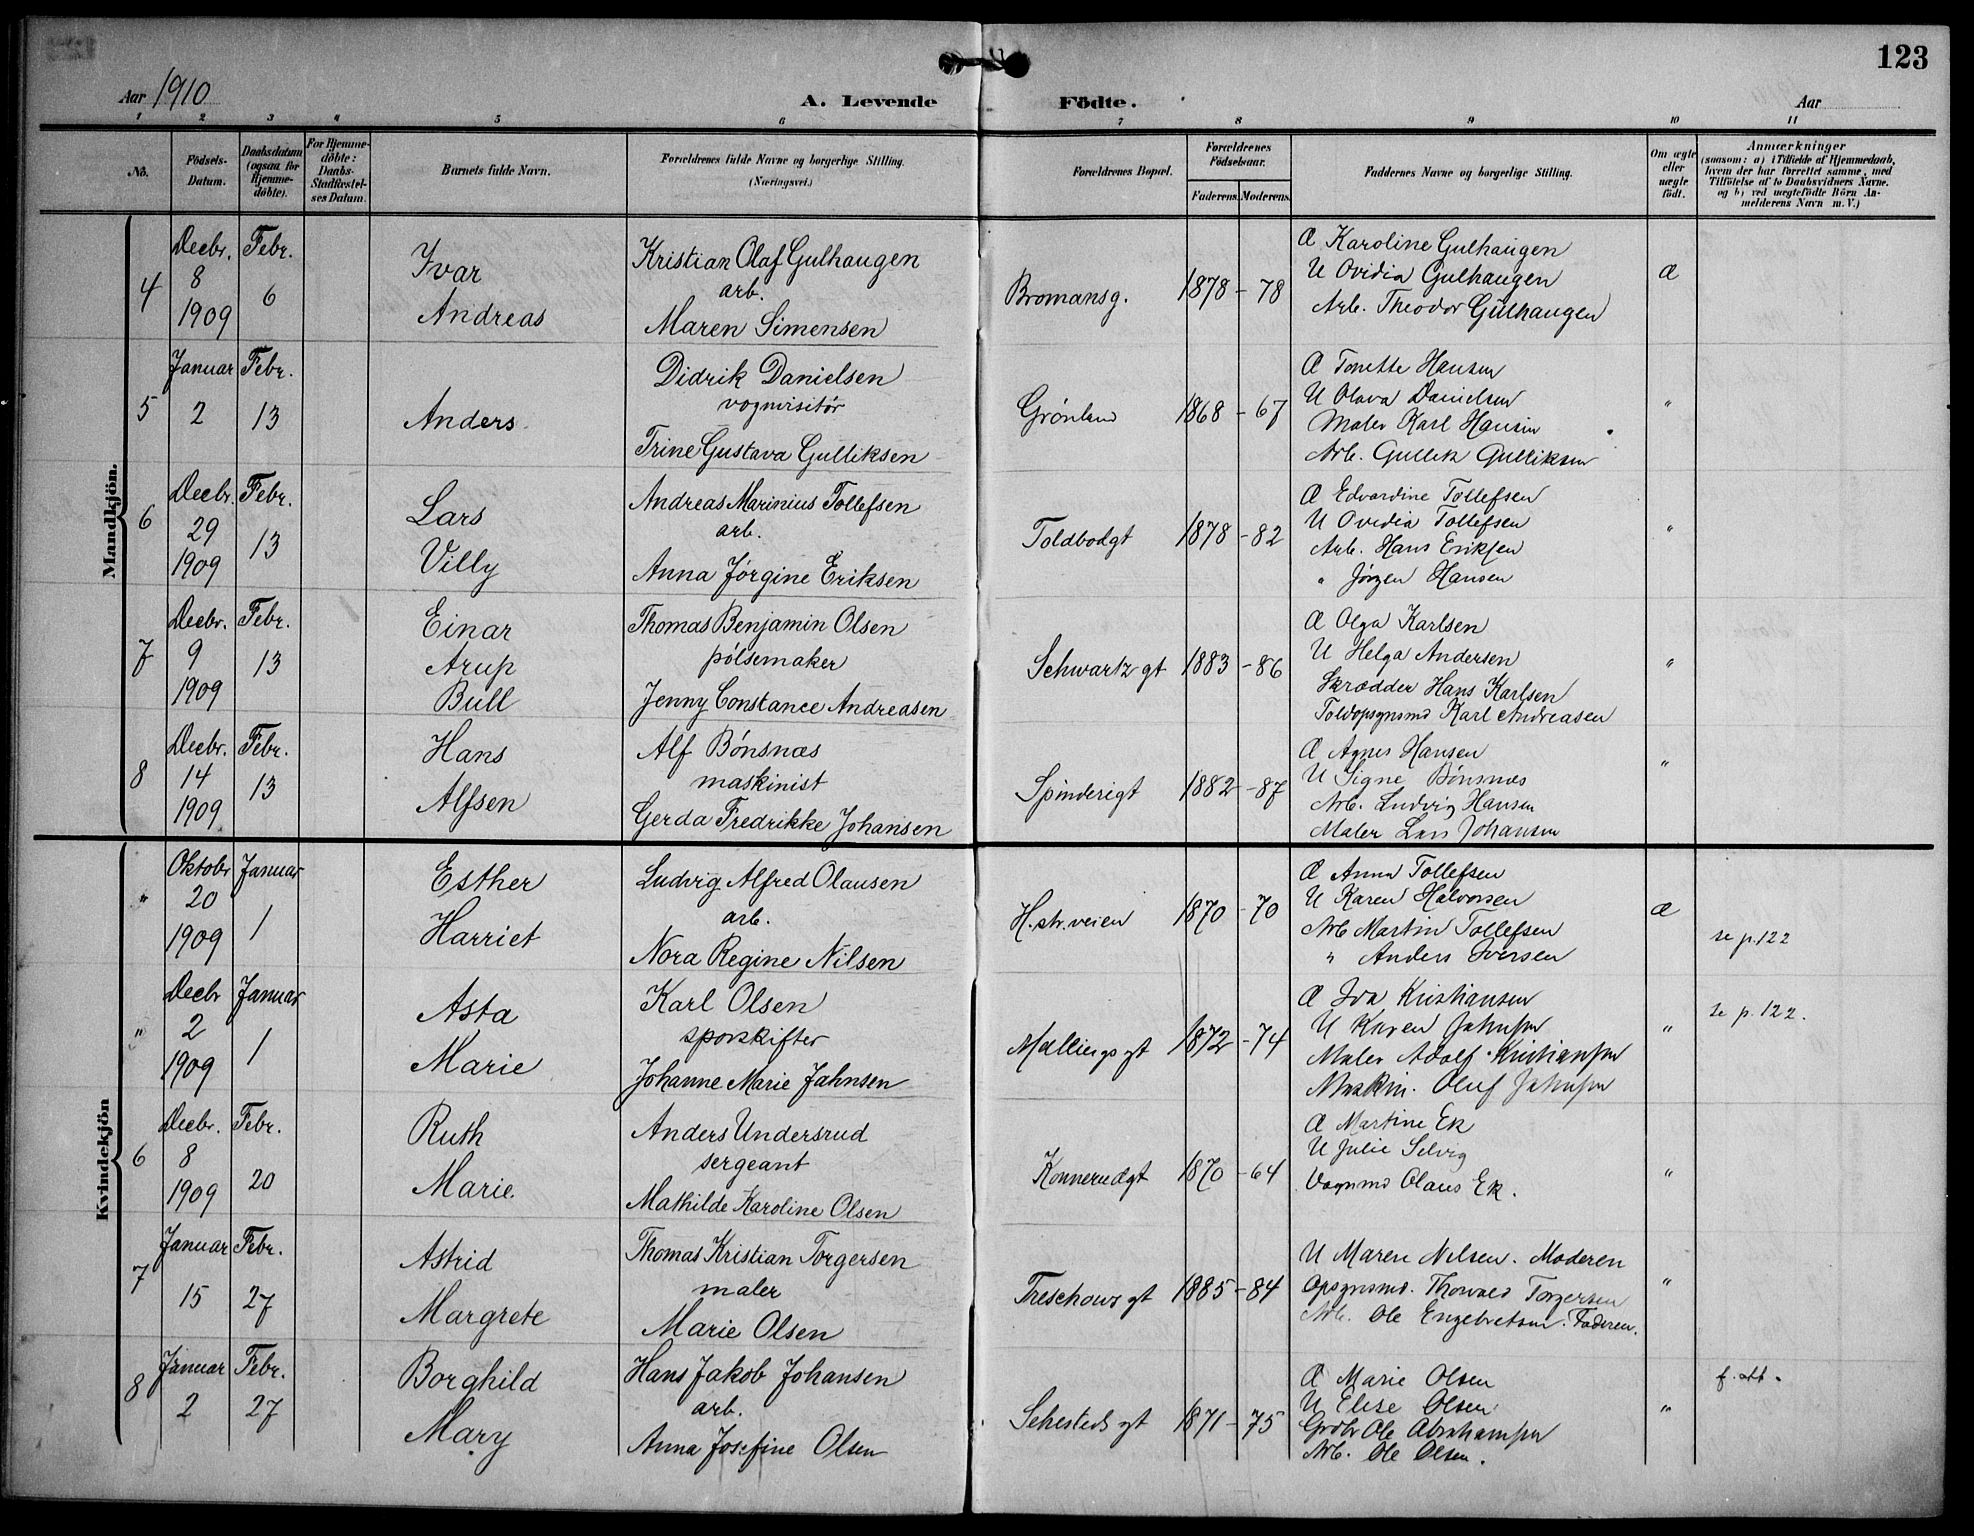 123
Aar 1910
A. Levende Födte.
Aar
1 2 3 4 5 6 7 8 9 10 11
No.
Födsels-Datum.
Daabsdatum (ogsaa for Hjemme-döbte).
For Hjemme-döbte: Daabs-Stadfæstel-ses Datum.
Barnets fulde Navn.
Forældrenes fulde Navne og borgerlige Stilling.
(Næringsvei.)
Forældrenes Bopæl.
Forældrenes Födselsaar.
Faderens. Moderens.
Faddernes Navne og borgerlige Stilling.
Om ægte eller uægte födt.
Anmærkninger
(saasom: a) i Tilfælde af Hjemmedaab,
hvem der har forrettet samme, med
Tilföielse af to Daabsvidners Navne.
og b) ved uægtefödte Börn An-
melderens Navn m. V.)
Mandkjön.
4
Decbr. 8 1909
Febr. 6
Ivar
Andreas
Kristian Olaf Gulhaugen
arb.
Maren Simensen
Bromansg.
1878 - 78
Æ Karoline Gulhaugen
U Ovidia Gulhaugen
Arb. Theodor Gulhaugen
Æ
5
Januar 2
Febr. 13
Anders
Didrik Danielsen
vognvisitör
Trine Gustava Gulliksen
Grønland
1868 - 67
Æ Tonette Hansen
U Olava Danielsen
Maler Karl Hansen
Arb. Gullik Gulliksen
"
6
Decbr. 29 1909
Febr. 13
Lars
Villy
Andreas Marinius Tollefsen
arb.
Anna Jørgine Eriksen
Toldbodgt
1878 - 82
Æ Edvardine Tollefsen
U Ovidia Tollefsen
Arb. Hans Eriksen
" Jörgen Hansen
"
7
Decbr. 9 1909
Febr. 13
Einar
Arup
Bull
Thomas Benjamin Olsen
pølsemaker
Jenny Constance Andreasen
Schwartz gt
1883 - 86
Æ Olga Karlsen
U Helga Andersen
Skrædder Hans Karlsen
Toldopsynsmd Karl Andreasen
"
8
Decbr. 14 1909
Febr. 13
Hans
Alfsen
Alf Bønsnæs
maskinist
Gerda Fredrikke Johansen
Spinderigt
1882 - 87
Æ Agnes Hansen
U Signe Bönsnæs
Arb. Ludvig Hansen
Maler Lars Johansen
"
Kvindekjön
"
Oktobr 20 1909
Januar 1
Esther
Harriet
Ludvig Alfred Olausen
arb.
Nora Regine Nilsen
H.str.veien
1870 - 70
Æ Anna Tollefsen
U Karen Halvorsen
Arb Martin Tollefsen
" Anders Iversen
Æ
se p. 122
"
Decbr 2 1909
Januar 1
Asta
Marie
Karl Olsen
sporskifter
Johanne Marie Jahnsen
gt
1872 - 74
Æ Kristiansen
U Karen Jahnsen
Maler Adolf Kristiansen
Maskin. Oluf Jahnsen
"
se p. 122.
6
Decbr. 8 1909
Febr. 20
Ruth
Marie
Anders Undersrud
sergeant
Mathilde Karoline Olsen
Konnerudgt
1870 - 64
Æ Martine Ek
U Julie Selvig
Vognmd Olaus Ek.
"
7
Januar 15
Febr. 27
Astrid
Margrete
Thomas Kristian Torgersen
maler
Marie Olsen
Treschows gt
1885 - 84
U Maren Nilsen. Moderen
Opsynsmd. Thorvald Torgersen
Arb. Ole Engebretsen. Faderen.
"
8
Januar 2
Febr. 27
Borghild
Mary
Hans Jakob Johansen
arb.
Anna Josefine Olsen
Sehesteds gt
1871 - 75
Æ Marie Olsen
U Elise Olsen
Ole Abrahamsen
Arb. Ole Olsen.
"
f. att.